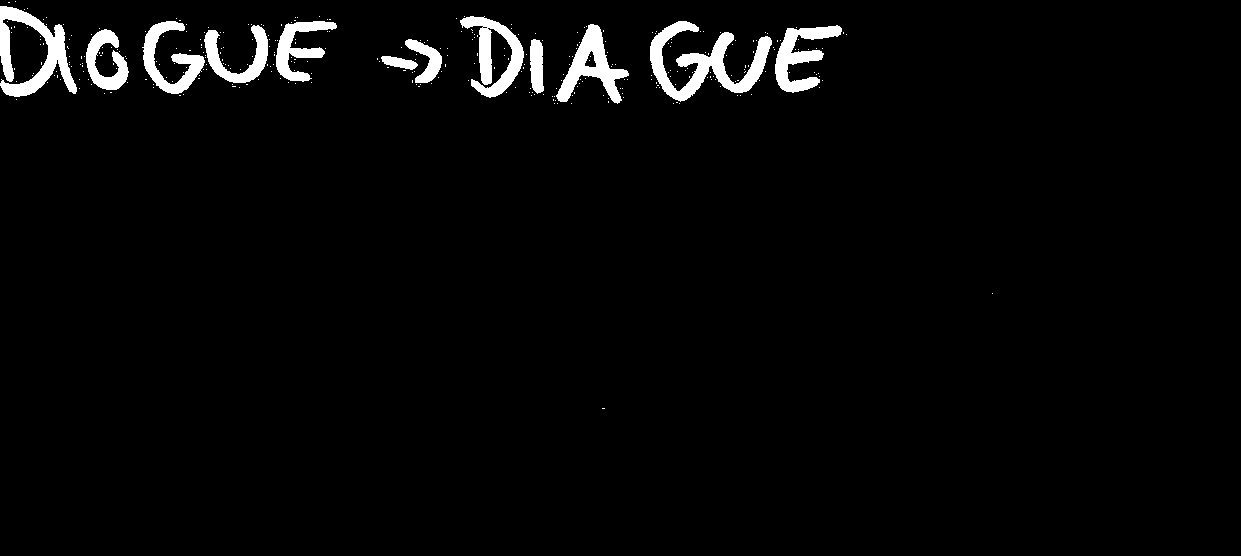 DIOGUE → DIAGUE